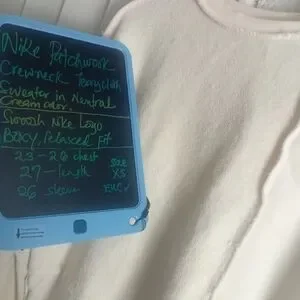 Nike Patchwork
Crewneck Terrycloth
Sweater in Neutral
Cream color.
Swoosh Nike Logo
Boxy, Relaxed Fit
23-26 chest
27-length
26 sleeve
Size
XS